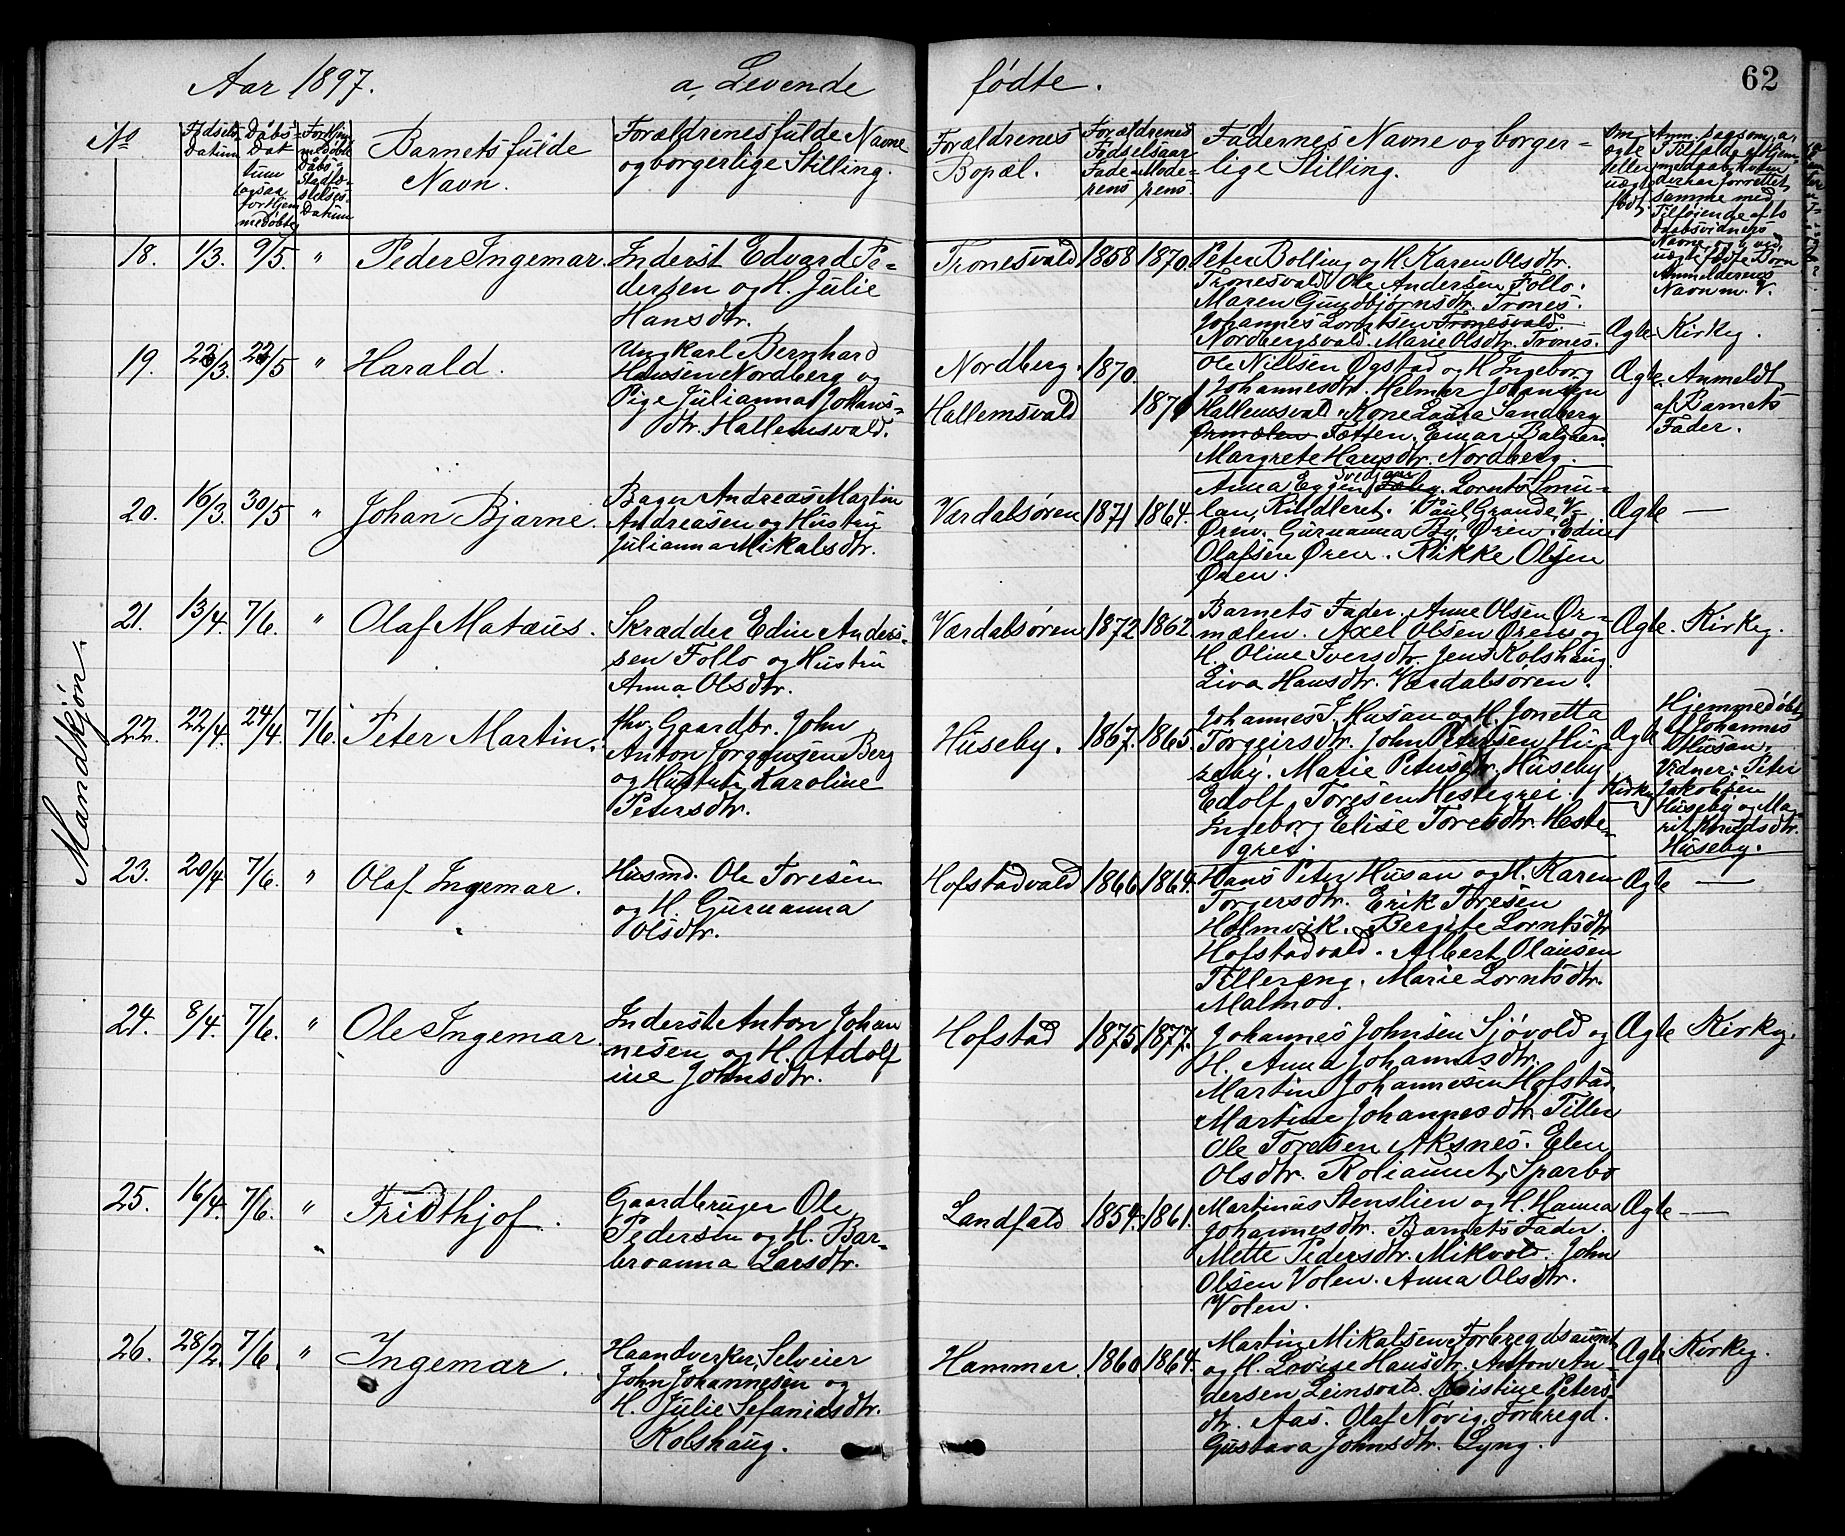 62
Aar 1897. a, Levende fødte.
No
Fødsels Datum
Dåbs-Datum ogsaa for Hjemmedøbte
For Hjemmedøbte Dåbs Stadfæstelses-Datum
Barnets fulde
Navn.
Forældrenes fulde Navne
og borgerlige Stilling.
Forældrenes
Bopæl.
Forældrenes
Fødselsaar
Faderens
Moderens
Faddernes Navne og borger-
lige Stilling.
Om
ægte
eller
uægte
født
Mandkjøn.
18. 1/3. 9/5. " Peder Ingemar.
Inderst Edvard Pe-
dersen og H. Julie
Hansdtr.
Tronesvald 1858 1870.
Peter Bolling og H. Karen Olsdtr.
Tronesvald Ole Andersen Follo.
Maren Gundbjørnsdtr. Trones.
Johannes Lorntsen Tronesvald.
Nordbergsvald. Marie Olsdtr. Trones.
Ægte Kirkeg.
19. " Harald.
Ungkarl Bernhard
Hansen Nordberg og
Pige Julianna Johans-
dtr. Hallemsvald.
Nordberg. 1870.
Hallemsvald 1871
Ole Nielsen Øgstad og H. Ingeborg
Johannesdtr. Helmer Johansen
Hallemsvald. Kone Laura Sandberg
Ørmælen Fætten. Einar Balgaard
Margrete Hansdtr. Nordberg.
Ægte. Anmeldt
af Barnets
Fader.
20. 16/3. 30/5 " Johan Bjarne.
Bager Andreas Martin
Andreasen og Hustru
Julianna Mikalsdtr.
Værdalsøren 1871 1864.
Anna Eggen Lornts Smu-
lan, Rindleret. Paul Grande V-
Øren. Guruanna By, Øren. Edin
Olafsen Øren. Rikke Olsen
Øren.
Ægte —
21. 13/4. 7/6. " Olaf Matæus.
Skrædder Edin Anders-
sen Follo og Hustru
Anna Olsdtr.
Værdalsøren 1872 1862.
Barnets Fader. Anne Olsen Ør-
mælen. Axel Olsen Øren og
H. Oline Iversdtr. Jens Kolshaug.
Liva Hansdtr. Værdalsøren.
Ægte. Kirkeg.
22. 22/4. 24/4. 7/6. Peter Martin.
fhv. Gaardbr. John
Anton Jørgensen Berg
og Hustru Karoline
Petersdtr.
Huseby. 1867. 1865.
Johannes J. Husan og H. Jonetta
Torgeirsdtr. John Petersen Hu-
seby. Marie Petersdtr. Huseby
Edolf Toresen Hestegrei.
Ingeborg Elise Toresdtr. Heste-
grei.
Ægte
Kirkeg
Hjemmedøbt
af Johannes
Husan.
Vidner: Peter
Jakobsen
Huseby og Ma-
rit Knudsdtr.
Huseby.
23. 20/4 7/6. " Olaf Ingemar.
Husmd. Ole Toresen
og H. Guruanna
Olsdtr.
Hofstadvald 1866 1864.
Hans Peter Husan og H. Karen
Torgersdtr. Erik Toresen
Holmvik. Bergite Lorntsdtr
Hofstadvald. Albert Olausen
Tillereng. Marie Lorntsdtr.
Malmo.
Ægte —
24. 8/4. 7/6. " Ole Ingemar.
Inderst Anton Johan
nesen og H. Adolf
ine Johnsdtr.
Hofstad 1875. 1877.
Johannes Johnsen Sjøvold og
H. Anna Johannesdtr.
Martin Johannesen Hofstad.
Martine Johannesdtr. Tiller
Ole Toresen Aksnes. Elen
Olsdtr. Roliaunet, Sparbo
Ægte Kirkeg.
25. 16/4. 7/6. " Fridthjof.
Gaardbruger Ole
Pedersen og H. Bar-
broanna Larsdtr.
Landfald 1854. 1861.
Martinus Stenslien og H. Hanna
Johannesdtr. Barnets Fader.
Mette Pedersdtr. Mikvold. John
Olsen Volen. Anna Olsdtr.
Volen.
Ægte —
26. 28/2. 7/6. " Ingemar.
Haandverker, Selveier
John Johannesen og
H. Julie Sefaniasdtr.
Kolshaug.
Hammer. 1860 1864.
Martin Mikalsen Forbregdsaunet
og H. Lovise Hansdtr. Anton An-
dersen Leinsvald. Kristine Peters-
dtr. Aas. Olaf Nøvig, Forbregd.
Gustava Johnsdtr. Lyng.
Ægte Kirkeg.